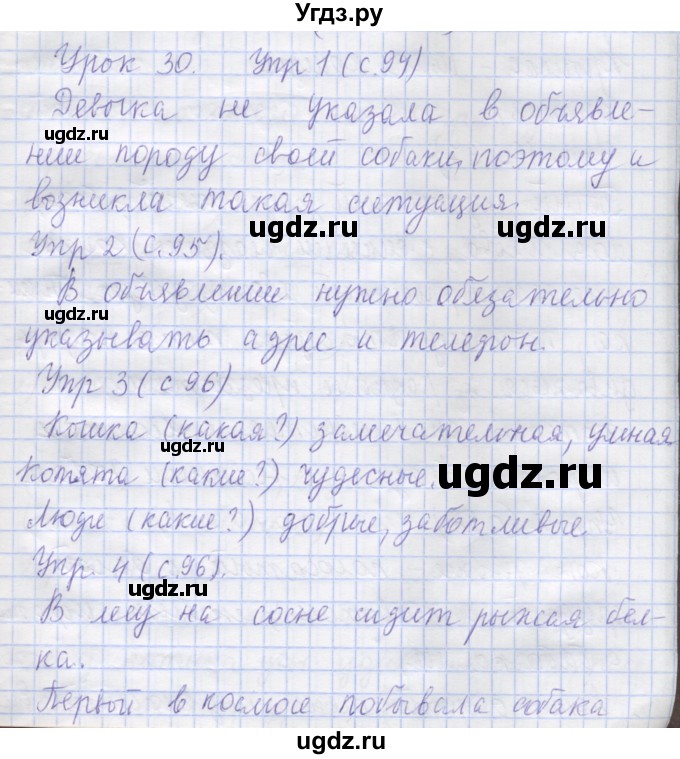 Угдз.ру
Урок 30. Упр 1 (с.94)
Девочка не указала в объявле-
ugdz.ru
нии породу своей собаки, поэтому и
возникла такая ситуация.
ugdz.ru ugdz.ru
Упр 2 (с.95).
В объявлении нужно обязательно
ugdz.ru
указывать адрес и телефон.
Упр 3 (с 96)
Кошка (какая?) замечательная, умная
ugdz.ru
Котята (какие?) чудесные.
ugdz.ru
Люди (какие?) добрые, заботливые.
Упр. 4 (с.96).
ugdz.ru
В лесу на сосне сидит рыжая бел-
ка.
Первой в космосе побывала собака
ugdz.ru
ugdz.ru